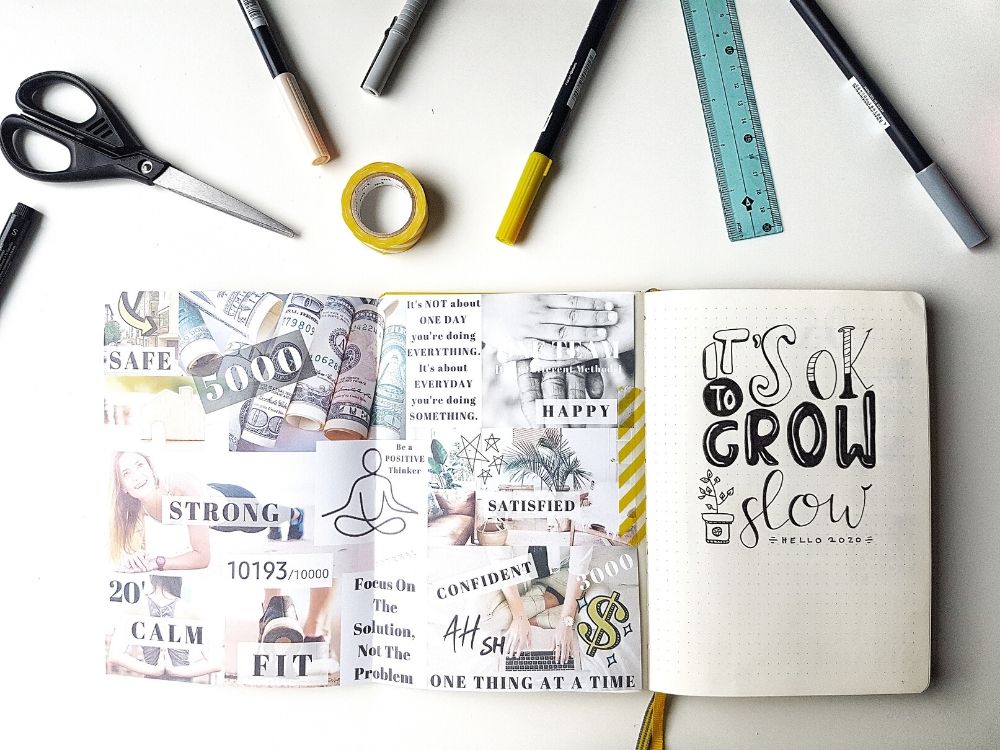 SAFE
5000
It's NOT about
ONE DAY
you're doing
EVERYTHING.
It's about
EVERYDAY
you're doing
SOMETHING.
HAPPY
Be a
POSITIVE
Thinker
STRONG
SATISFIED
10193/10000
20'
CALM
FIT
Focus On
The
Solution,
Not The
Problem
CONFIDENT
3000
$
AH
SH
ONE THING AT A TIME
IT'S OK
TO
GROW
slow
HELLO 2020